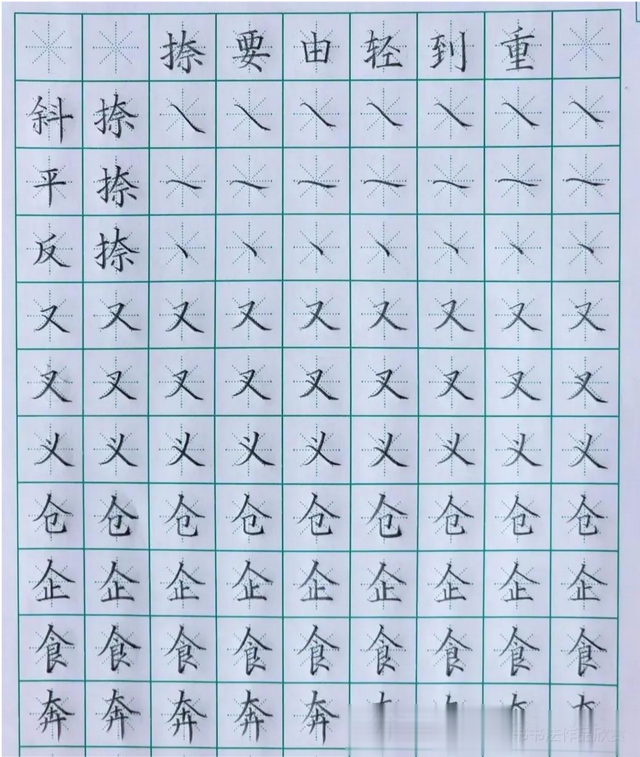 捺要由轻到重
斜捺
平捺
反捺
又又又又又又又又又
叉叉叉叉叉叉叉叉叉
义义义义义义义义义
仓仓仓仓仓仓仓仓仓
企企企企企企企企企
食食食食食食食食食
奔奔奔奔奔
书法作品欣